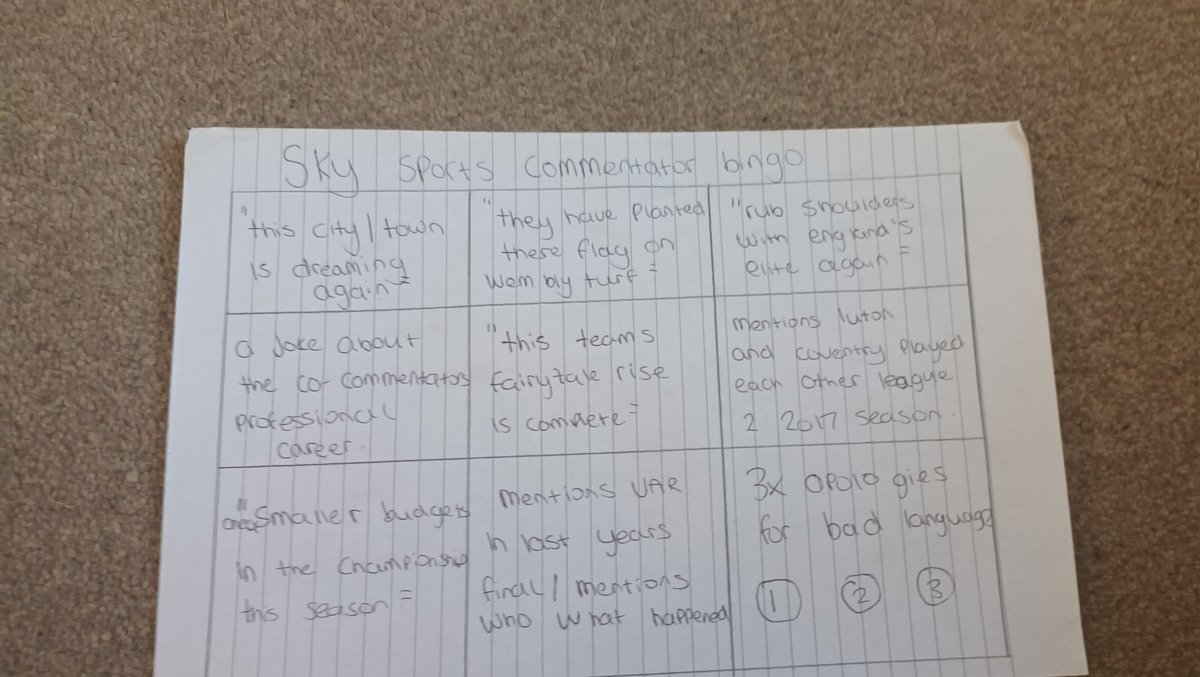 Sky Sports Commentator bingo
"this city/town
is dreaming
again"
"they have planted
there flag on
wembly turf"
"rub shoulders
with england's
elite again"
a joke about
the co-commentators
professional
career.
"this teams
fairytale rise
is complete"
mentions luton
and coventry played
each other league
2 2017 season.
"smaller budgets
in the championship
this season"
mentions VAR
in last years
final/mentions
who what happened
3x apologies
for bad language
1 2 3